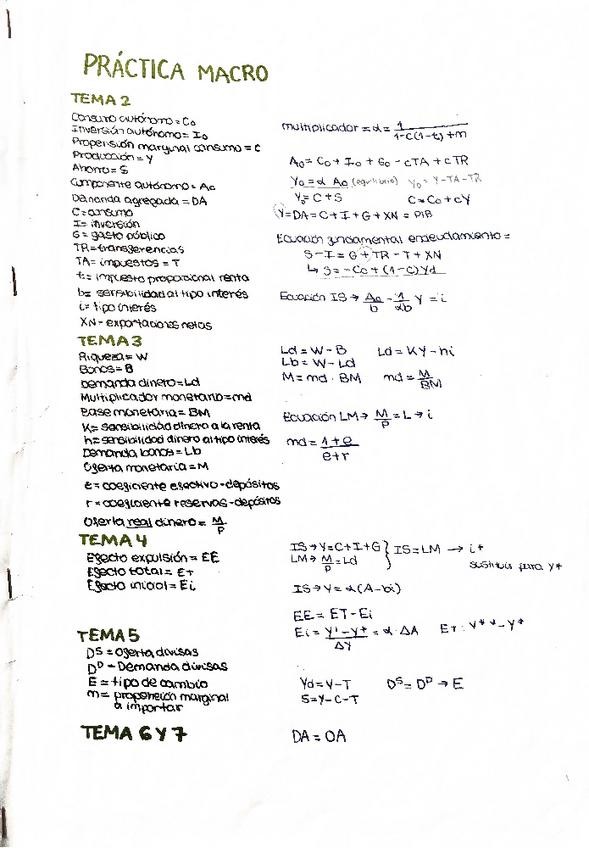 PRÁCTICA MACRO
TEMA 2
Consumo autónomo = Co
Inversión autónomo = Io
Propensión marginal consumo = c
Producción = Y
Ahorro = S
Componente autónomo = Ao
Demanda agregada = DA
C = consumo
I = inversión
G = gasto público
TR = transferencias
TA = impuestos = T
t = impuesto proporcional renta
b = sensibilidad al tipo interés
i = tipo interés
XN - exportaciones netas
multiplicador = α = 1 / 1-c(1-t)+m
Ao = Co + Io + Go - cTA + cTR
Yo = α Ao (equilibrio) Yo = Y-TA-TR
Yo = C+S C = Co + cY
Y = DA = C+I+G+XN = PIB
Ecuación fundamental endeudamiento =
S-I = G+TR-T+XN
↳ S = -Co + (1-c)Yd
Ecuación IS → Ao/b - 1/αb Y = i
TEMA 3
Riqueza = W
Bonos = B
Demanda dinero = Ld
Multiplicador monetario = md
Base monetaria = BM
K = sensibilidad dinero a la renta
h = sensibilidad dinero al tipo interés
Demanda bonos = Lb
Oferta monetaria = M
e = coeficiente efectivo-depósitos
r = coeficiente reservas-depósitos
Oferta real dinero = M/P
Ld = W - B Ld = KY - hi
Lb = W - Ld
M = md · BM md = M/BM
Ecuación LM → M/P = L → i
md = 1+e / e+r
TEMA 4
Efecto expulsión = EE
Efecto total = ET
Efecto inicial = Ei
IS → Y = C+I+G } IS = LM → i*
LM → M/P = Ld
sustituir para Y*
IS → Y = α(A-bi)
EE = ET - Ei
Ei = Y'-Y* / ΔY = α·ΔA ET: Y** - Y*
TEMA 5
Dˢ = Oferta divisas
Dᴰ = Demanda divisas
E = tipo de cambio
m = proporción marginal
a importar
Yd = Y-T Dˢ = Dᴰ → E
S = Y-C-T
TEMA 6 Y 7
DA = OA